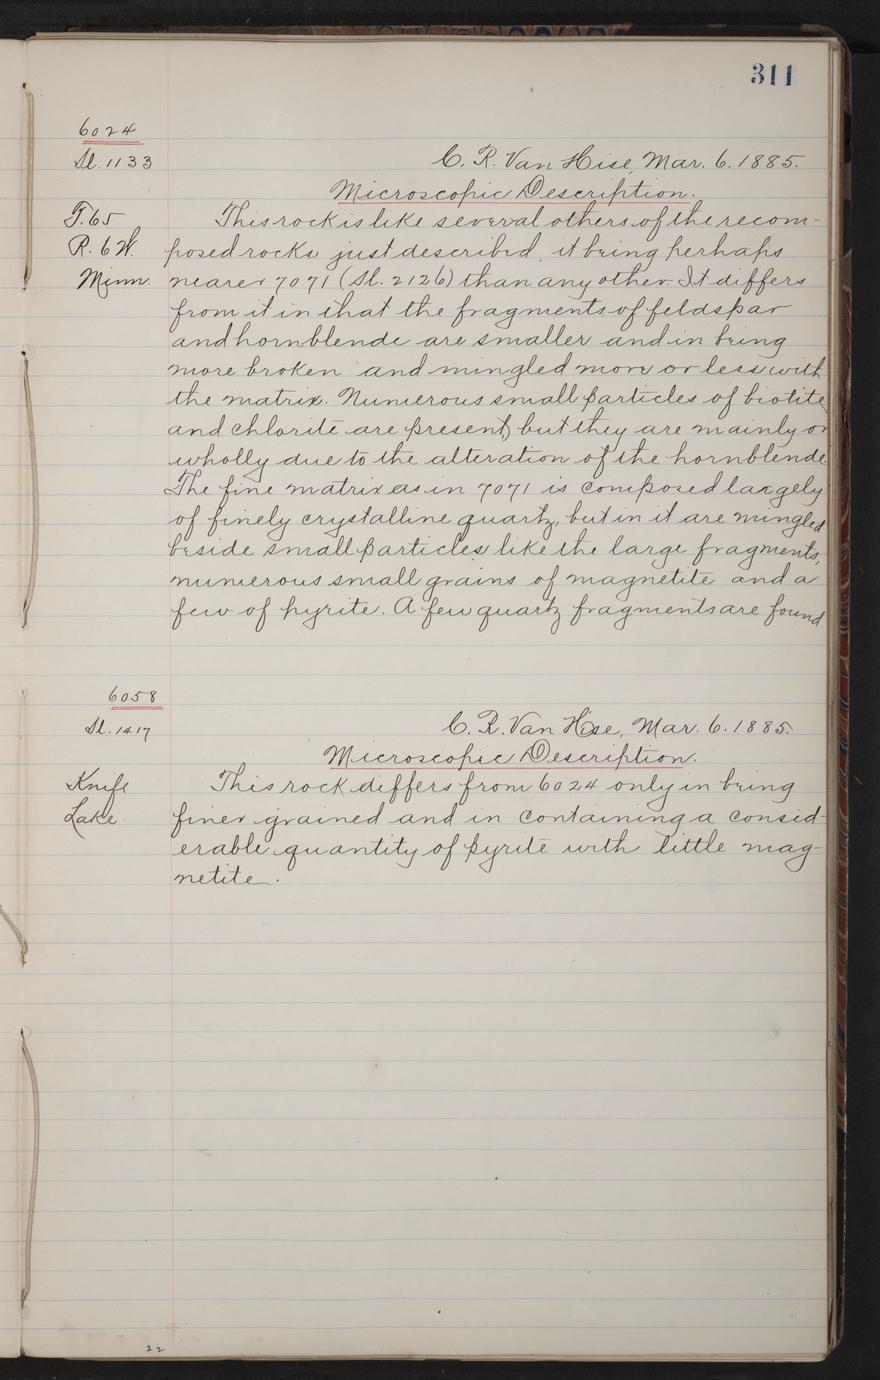 311
6024
Sl. 1133
C. R. Van Hise, Mar. 6. 1885.
Microscopic Description.
T. 65
R. 6 W.
Minn.
This rock is like several others of the recom-
posed rocks just described, it being perhaps
nearer 7071 (Sl. 2126) than any other. It differs
from it in that the fragments of feldspar
and hornblende are smaller and in being
more broken and mingled more or less with
the matrix. Numerous small particles of biotite
and chlorite are present, but they are mainly or
wholly due to the alteration of the hornblende.
The fine matrix as in 7071 is composed largely
of finely crystalline quartz, but in it are mingled
beside small particles like the large fragments,
numerous small grains of magnetite and a
few of pyrite. A few quartz fragments are found
6058
Sl. 1417
C. R. Van Hise, Mar. 6. 1885.
Microscopic Description.
Knife
Lake.
This rock differs from 6024 only in being
finer grained and in containing a consid-
erable quantity of pyrite with little mag-
netite.
22